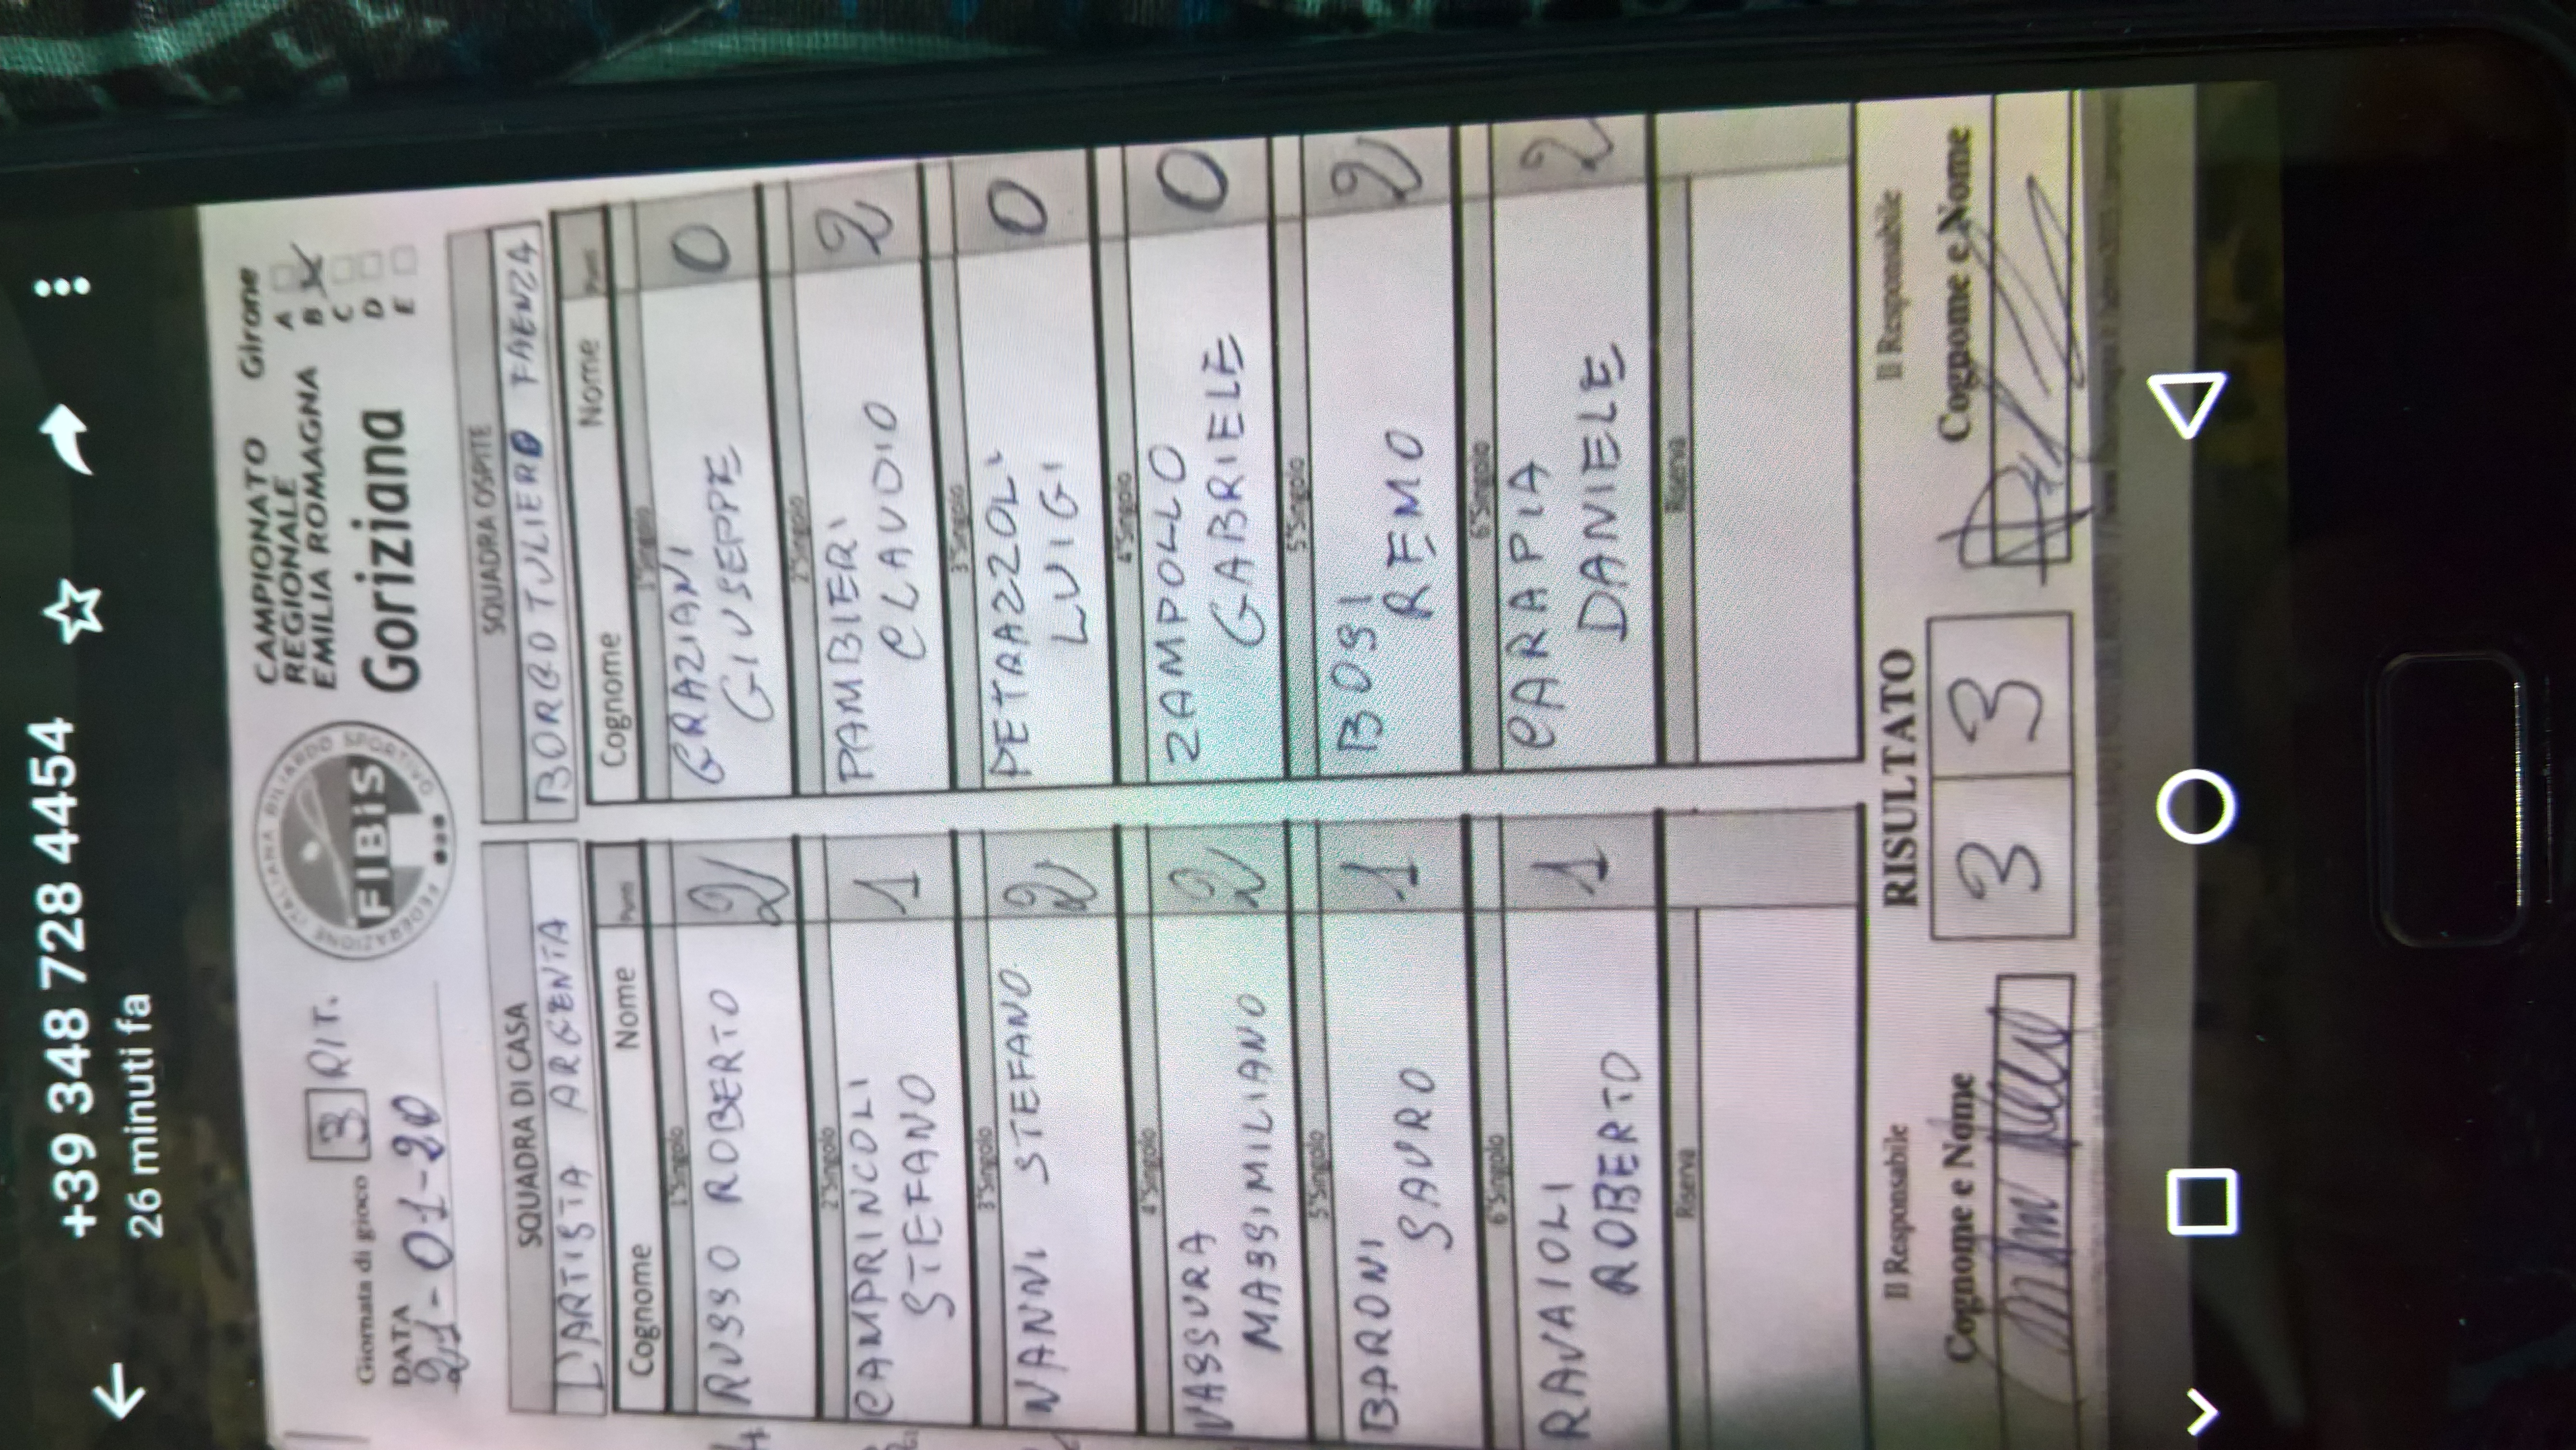 +39 348 728 4454
26 minuti fa
Giornata di gioco 3 RIT.
DATA
21-01-20
FEDERAZIONE ITALIANA BILIARDO SPORTIVO
FIBiS
CAMPIONATO
REGIONALE
EMILIA ROMAGNA
Goriziana
Girone
A
B X
C
D
E
SQUADRA DI CASA
L'ARTISTA ARGENTA
Cognome Nome Punti
1°Singolo
RUSSO ROBERTO 2
2°Singolo
CAMPRINCOLI
STEFANO 1
3°Singolo
NANNI STEFANO 2
4°Singolo
VASSURA
MASSIMILIANO 2
5°Singolo
BARONI
SAURO 1
6°Singolo
RAVAIOLI
ROBERTO 1
Riserva
SQUADRA OSPITE
BORGO TULIERO FAENZA
Cognome Nome Punti
1°Singolo
GRAZIANI
GIUSEPPE 0
2°Singolo
PAMBIERI
CLAUDIO 2
3°Singolo
PETRAZZOLI
LUIGI 0
4°Singolo
ZAMPOLLO
GABRIELE 0
5°Singolo
BOSI
REMO 2
6°Singolo
CARAPIA
DANIELE 2
Riserva
Il Responsabile
Cognome e Nome
RISULTATO
3 3
Il Responsabile
Cognome e Nome